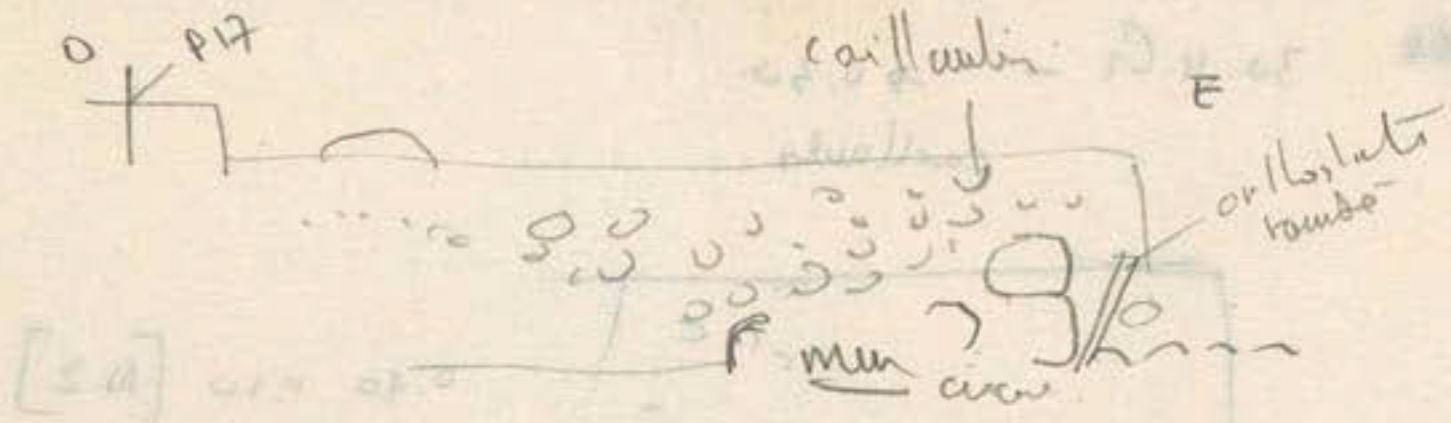 O P17
cailloutis
E
orthostate
tombé
mur